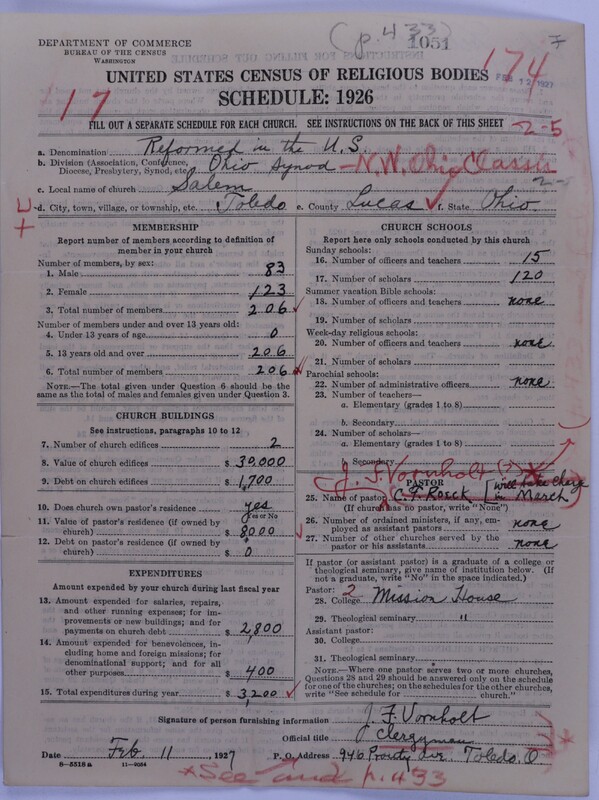 (p. 433)
1051
7
DEPARTMENT OF COMMERCE
BUREAU OF THE CENSUS
WASHINGTON
174
FEB 12 1927
UNITED STATES CENSUS OF RELIGIOUS BODIES
17
SCHEDULE: 1926
FILL OUT A SEPARATE SCHEDULE FOR EACH CHURCH. SEE INSTRUCTIONS ON THE BACK OF THIS SHEET
2-5
a. Denomination Reformed in the U.S.
b. Division (Association, Conference, Diocese, Presbytery, Synod, etc.) Ohio Synod - N.W. Ohio Classis
c. Local name of church Salem
d. City, town, village, or township, etc. Toledo e. County Lucas f. State Ohio.
MEMBERSHIP
Report number of members according to definition of
member in your church
Number of members, by sex:
1. Male 83
2. Female 123
3. Total number of members 206
Number of members under and over 13 years old:
4. Under 13 years of age 0
5. 13 years old and over 206
6. Total number of members 206
NOTE.—The total given under Question 6 should be
same as the total of males and females given under Question 3.
CHURCH BUILDINGS
See instructions, paragraphs 10 to 12
7. Number of church edifices 2
8. Value of church edifices $ 30,000
9. Debt on church edifices $ 1,700
10. Does church own pastor's residence yes
Yes or No
11. Value of pastor's residence (if owned by
church) $ 8000
12. Debt on pastor's residence (if owned by
church) $ 0
EXPENDITURES
Amount expended by your church during last fiscal year
13. Amount expended for salaries, repairs,
and other running expenses; for im-
provements or new buildings; and for
payments on church debt $ 2,800
14. Amount expended for benevolences,
including home and foreign missions; for
denominational support; and for all
other purposes $ 400
15. Total expenditures during year $ 3,200
CHURCH SCHOOLS
Report here only schools conducted by this church
Sunday schools:
16. Number of officers and teachers 15
17. Number of scholars 120
Summer vacation Bible schools:
18. Number of officers and teachers none
19. Number of scholars
Week-day religious schools:
20. Number of officers and teachers none
21. Number of scholars
Parochial schools:
22. Number of administrative officers none
23. Number of teachers—
a. Elementary (grades 1 to 8)
b. Secondary
24. Number of scholars—
a. Elementary (grades 1 to 8)
b. Secondary
J. F. Vornholt (?)
PASTOR
25. Name of pastor C. F. Roeck [will take charge in March]
(If church has no pastor, write "None")
26. Number of ordained ministers, if any, em-
ployed as assistant pastors none
27. Number of other churches served by the
pastor or his assistants none
If pastor (or assistant pastor) is a graduate of a college or
theological seminary, give name of institution below. (If
not a graduate, write "No" in the space indicated.)
Pastor: 2
28. College Mission House
29. Theological seminary "
Assistant pastor:
30. College
31. Theological seminary
NOTE.—Where one pastor serves two or more churches,
Questions 28 and 29 should be answered only on the schedule
for one of the churches; on the schedules for the other churches,
write "See schedule for church."
Signature of person furnishing information J. F. Vornholt
Official title Clergyman
Date Feb. 11, 1927 P. O. Address 946 Prouty Ave. Toledo, O
8-5518 a 11-9054
*See card p. 433